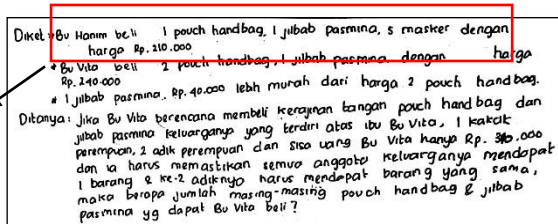 Diket : * Bu Hanim beli 1 pouch handbag, 1 jilbab pasmina, 5 masker dengan
harga Rp. 210.000
* Bu Vita beli 2 pouch handbag, 1 jilbab pasmina dengan harga
Rp. 240.000
* 1 jilbab pasmina, Rp. 40.000 lebh murah dari harga 2 pouch handbag.
Ditanya : Jika Bu Vita berencana membeli kerajinan tangan pouch handbag dan
jilbab pasmina keluarganya yang terdiri atas ibu Bu Vita, 1 kakak
perempuan, 2 adik perempuan dan sisa uang Bu Vita hanya Rp.
dan ia harus memastikan semua anggota keluarganya mendapat
1 barang & ke-2 adiknya harus mendapat barang yang sama,
maka berapa jumlah masing-masing pouch handbag & jilbab
pasmina yg dapat Bu Vita beli ?